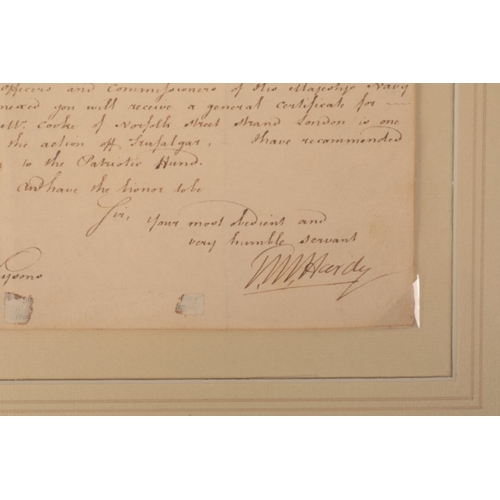 Officers and Commissioners of His Majestys Navy
nexed you will receive a general certificate for
Mr. Cooke of Norfolk Street Strand London is one
the action off Trafalgar. I have recommended
to the Patriotic Fund.
And have the honor to be
Sir, Your most obedient and
very humble servant
T M Hardy